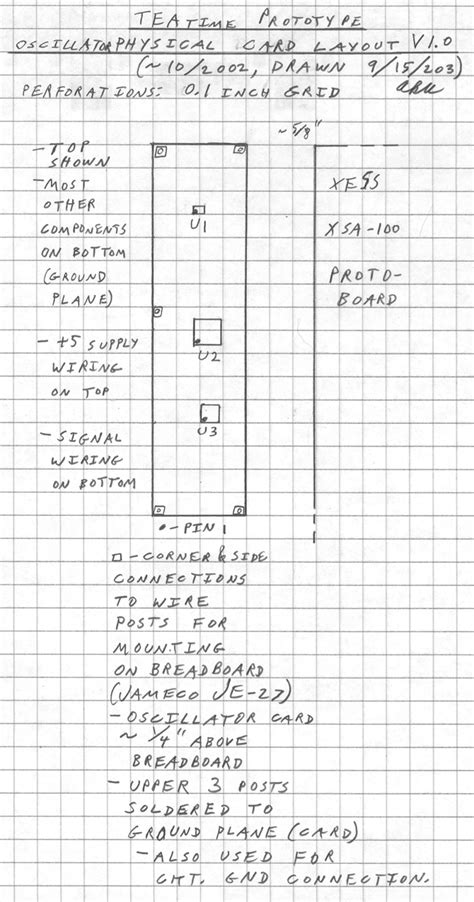 TEATIME PROTOTYPE
OSCILLATOR PHYSICAL CARD LAYOUT V1.0
(~10/2002, DRAWN 9/15/203)
PERFORATIONS: 0.1 INCH GRID
~5/8"
- TOP SHOWN
- MOST OTHER COMPONENTS ON BOTTOM (GROUND PLANE)
- +5 SUPPLY WIRING ON TOP
- SIGNAL WIRING ON BOTTOM
U1
U2
U3
XESS
XSA-100
PROTO-
BOARD
•-PIN 1
□-CORNER & SIDE
CONNECTIONS
TO WIRE
POSTS FOR
MOUNTING
ON BREADBOARD
(JAMECO JE-27)
- OSCILLATOR CARD
~ 1/4" ABOVE
BREADBOARD
- UPPER 3 POSTS
SOLDERED TO
GROUND PLANE (CARD)
- ALSO USED FOR
CKT. GND CONNECTION.